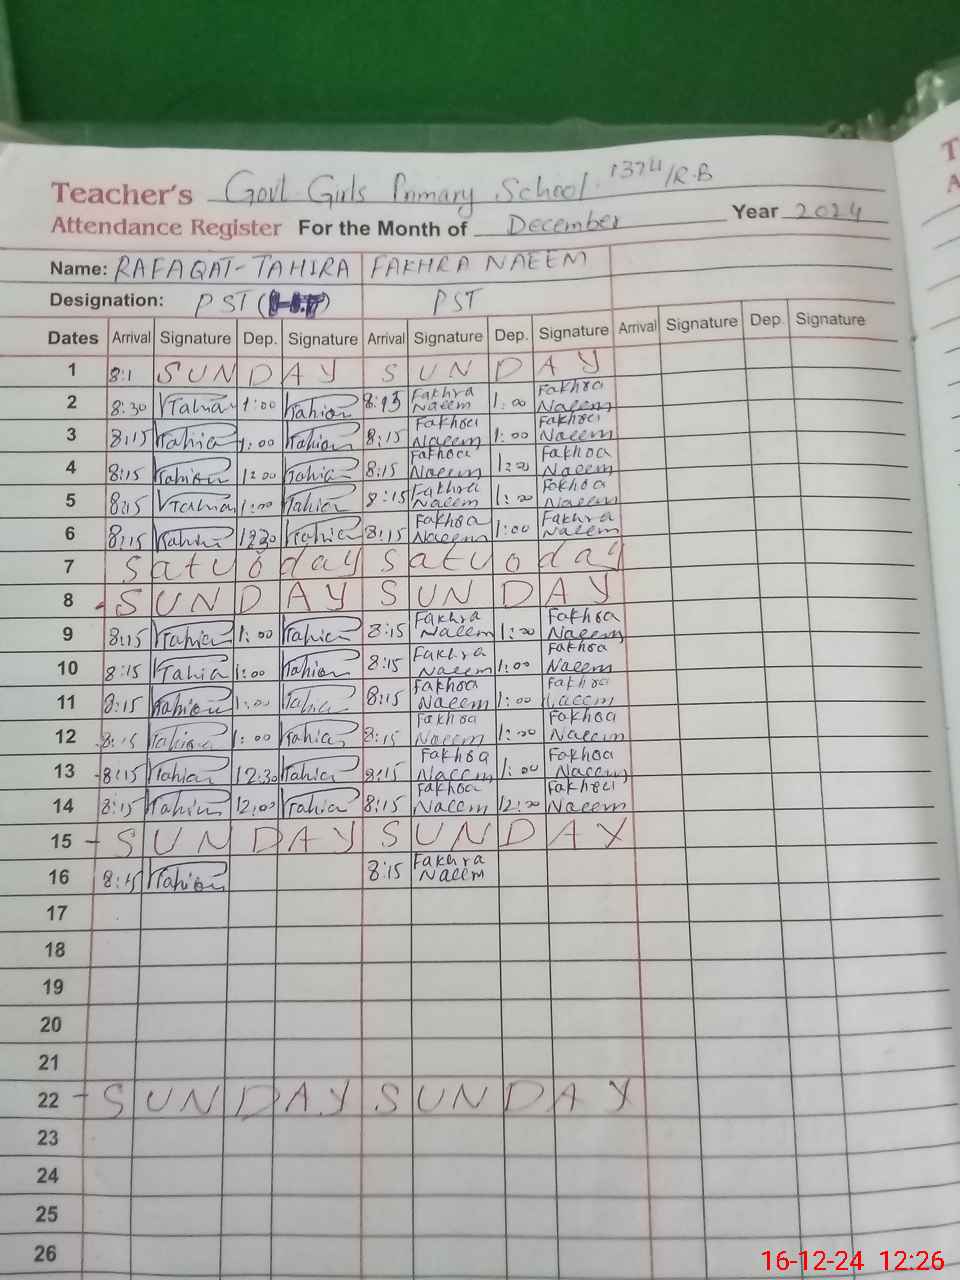 Teacher's Govt Girls Primary School 1374/R.B
Attendance Register For the Month of December Year 2024
Name: RAFAQAT-TAHIRA FAKHRA NAEEM
Designation: PST PST
Dates Arrival Signature Dep. Signature Arrival Signature Dep. Signature Arrival Signature Dep. Signature
1 8:1 SUNDAY SUNDAY
2 8:30 Tahira 1:00 Tahira 8:15 Fakhra Naeem 1:00 Fakhra Naeem
3 8:15 Tahira 1:00 Tahira 8:15 Fakhra Naeem 1:00 Fakhra Naeem
4 8:15 Tahira 1:00 Tahira 8:15 Fakhra Naeem 1:00 Fakhra Naeem
5 8:15 Tahira 1:00 Tahira 8:15 Fakhra Naeem 1:00 Fakhra Naeem
6 8:15 Tahira 12:30 Tahira 8:15 Fakhra Naeem 1:00 Fakhra Naeem
7 Saturday Saturday
8 SUNDAY SUNDAY
9 8:15 Tahira 1:00 Tahira 8:15 Fakhra Naeem 1:00 Fakhra Naeem
10 8:15 Tahira 1:00 Tahira 8:15 Fakhra Naeem 1:00 Fakhra Naeem
11 8:15 Tahira 1:00 Tahira 8:15 Fakhra Naeem 1:00 Fakhra Naeem
12 8:15 Tahira 1:00 Tahira 8:15 Fakhra Naeem 1:00 Fakhra Naeem
13 8:15 Tahira 12:30 Tahira 8:15 Fakhra Naeem 1:00 Fakhra Naeem
14 8:15 Tahira 12:00 Tahira 8:15 Fakhra Naeem 12:00 Fakhra Naeem
15 - SUNDAY SUNDAY
16 8:15 Tahira 8:15 Fakhra Naeem
17
18
19
20
21
22 - SUNDAY SUNDAY
23
24
25
26
16-12-24 12:26